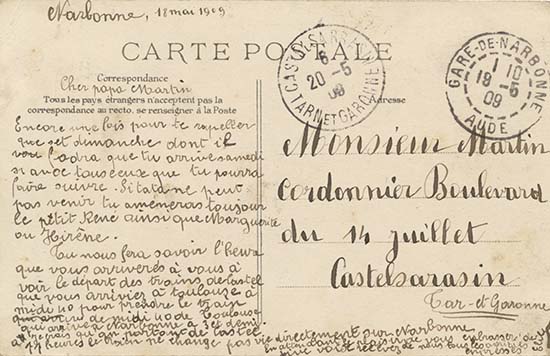 Narbonne, 18 mai 1909
CARTE POSTALE
Correspondance
Cher papa Martin
Tous les pays étrangers n'acceptent pas la
correspondance au recto. se renseigner à la Poste
Adresse
CASTELSARRASIN
20-5
09
TARN ET GARONNE
GARE-DE-NARBONNE
1 10
19-5
09
AUDE
Encore une fois pour te rappeller
que set dimanche dont il
voudra que tu arrive samedi
si avec tous ceux que tu pourra
faire suivre. Si tatane peut
pas venir tu améneras toujour
le petit René ainsi que Marguerite
ou Hirène.
Tu nous fera savoir l'heure
que vous arriverés à vous à
voir le départ des trains de Castel
que vous arrivier à toulouse à
midi 40 pour prendre le train
de midi 40 de toulouse
qui arrive à Narbonne à 3 et demi
heures le train ne change pas vie directement sur Narbonne
Monsieur Martin
Cordonnier Boulevard
du 14 juillet
Castelsarasin
Tar-et-Garonne